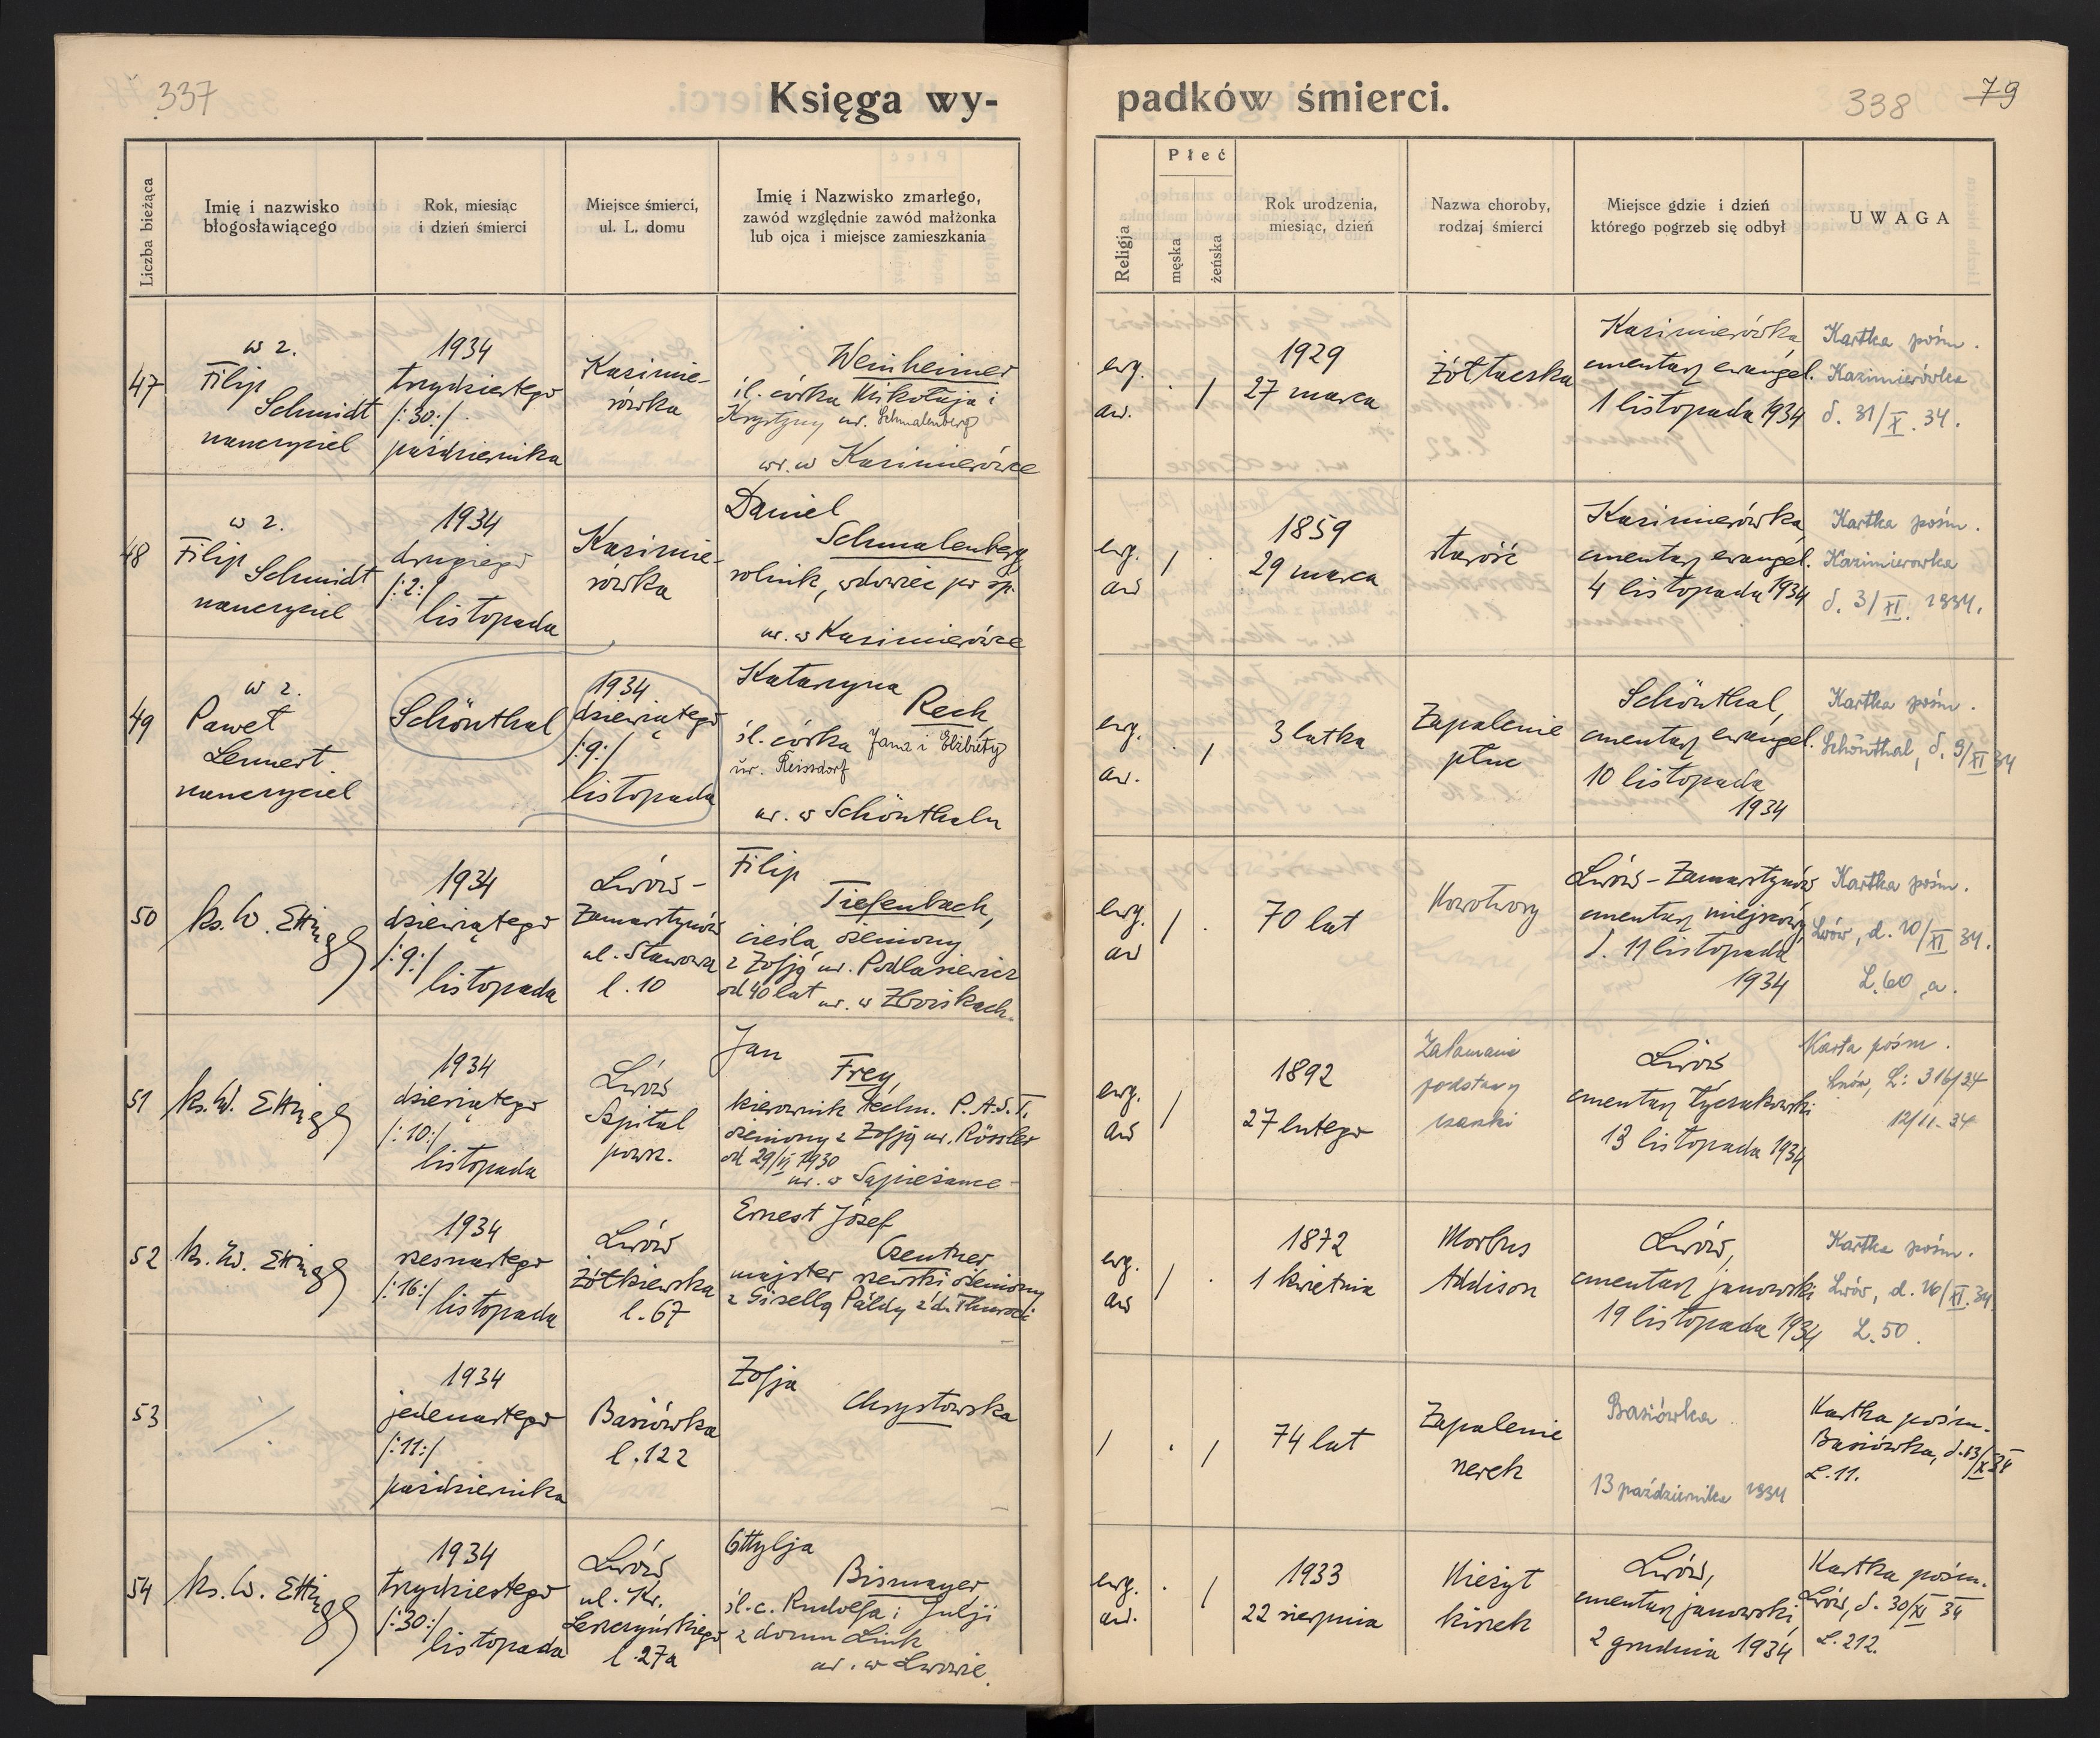 337
Księga wy-
padków śmierci.
338
79
Liczba bieżąca
Imię i nazwisko
błogosławiącego
Rok, miesiąc
i dzień śmierci
Miejsce śmierci,
ul. L. domu
Imię i Nazwisko zmarłego,
zawód względnie zawód małżonka
lub ojca i miejsce zamieszkania
Religja
Płeć
męska
żeńska
Rok urodzenia,
miesiąc, dzień
Nazwa choroby,
rodzaj śmierci
Miejsce gdzie i dzień
którego pogrzeb się odbył
UWAGA
47
w z.
Filip
Schmidt
nauczyciel
1934
trzydziestego
/:30:/
października
Kazimie-
rówka
Weinheimer
śl. córka Mikołaja i
Krystyny ur. Schmalenberg
ur. w Kazimierówce
ewg.
aw.
. /
1929
27 marca
żółtaczka
Kazimierówka
cmentarz ewangel.
1 listopada 1934
Kartka pośm.
Kazimierówka
d. 31/X. 34.
48
w z.
Filip
Schmidt
nauczyciel
1934
drugiego
/:2:/
listopada
Kazimie-
rówka
Daniel
Schmalenberg
rolnik, wdowiec po śp.
ur. w Kazimierówce
ewg.
aw
/ .
1859
29 marca
starość
Kazimierówka,
cmentarz ewangel.
4 listopada 1934
Kartka pośm.
Kazimierowka
d. 3/XI. 1934.
49
w z.
Paweł
Lennert.
nauczyciel
Schönthal
1934
dziewiątego
/:9:/
listopada
Katarzyna
Rech,
śl. córka Jana i Elżbiety
ur. Reissdorf
ur. w Schönthalu
ewg.
aw.
. /
3 latka
Zapalenie
płuc
Schönthal,
cmentarz ewangel.
10 listopada
1934
Kartka pośm.
Schönthal, d. 9/XI 34
50
ks. W. Ettinger
1934
dziewiątego
/:9:/
listopada
Lwów-
Zamarstynów
ul. Stawowa
l. 10
Filip
Tiefenbach,
cieśla, żeniony
z Zofją ur. Podlasiewicz
od 40 lat ur. w Zboiskach.
ewg.
aw
/ .
70 lat
Nowotwory
Lwów-Zamarstynów
cmentarz miejscowy
d. 11 listopada
1934
Kartka pośm.
Lwów, d. 10/XI 34.
L. 60 a.
51
ks. W. Ettinger
1934
dziesiątego
/:10:/
listopada
Lwów
Szpital
powsz.
Jan
Frey,
kierownik techn. P.A.S.T.
żeniony z Zofją ur. Rössler
od 29/VI 1930
ur. w Sapieżance
ewg.
aw
/
1892
27 lutego
Załamanie
podstawy
czaszki
Lwów
cmentarz Łyczakowski
13 listopada 1934
Karta pośm.
Lwów, L: 316/34
12/11-34
52
ks. W. Ettinger
1934
szesnastego
/:16:/
listopada
Lwów
Żółkiewska
l. 67
Ernest Józef
Czentner,
majster szewski żeniony
z Gisellą Páldy z d.
ewg.
aw
/ .
1872
1 kwietnia
Morbus
Addison
Lwów,
cmentarz janowski
19 listopada 1934
Kartka pośm.
Lwów, d. 16/XI. 34.
L. 50.
53
/
1934
jedenastego
/:11:/
października
Basiówka
l. 122
Zofja
Chrystowska
/
. /
74 lat
Zapalenie
nerek
Basiówka
13 października 1934
Kartka pośm.
Basiówka, d. 13/X 34
L. 11.
54
ks. W. Ettinger
1934
trzydziestego
/:30:/
listopada
Lwów
ul. Kr.
Leszczyńskiego
l. 27a
Ottylja
Bismayer
śl. c. Rudolfa i Julji
z domu Link
ur. w Lwowie.
ewg.
aw.
. /
1933
22 sierpnia
Nieżyt
kiszek
Lwów,
cmentarz janowski,
2 grudnia 1934
Kartka pośm.
Lwów, d. 30/XI 34
L. 212.